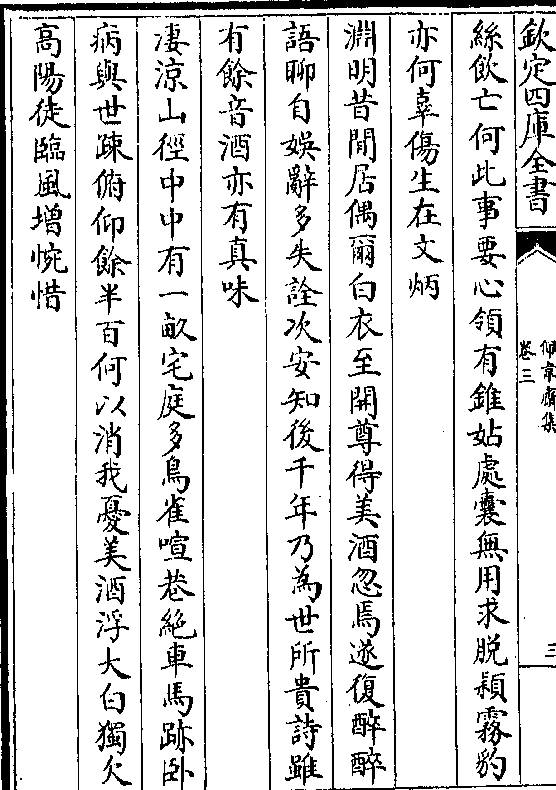 欽定四庫全書
佩韋齋集
卷三
三
絲飲亡何此事要心領有錐姑處囊無用求脱穎霧豹
亦何辜傷生在文炳
淵明昔閒居偶爾白衣至開尊得美酒忽焉遂復醉醉
語聊自娱辭多失詮次安知後千年乃為世所貴詩雖
有餘音酒亦有真味
凄涼山徑中中有一畝宅庭多鳥雀喧巷絶車馬跡卧
病與世疎俯仰餘半百何以消我憂美酒浮大白獨欠
高陽徒臨風增惋惜